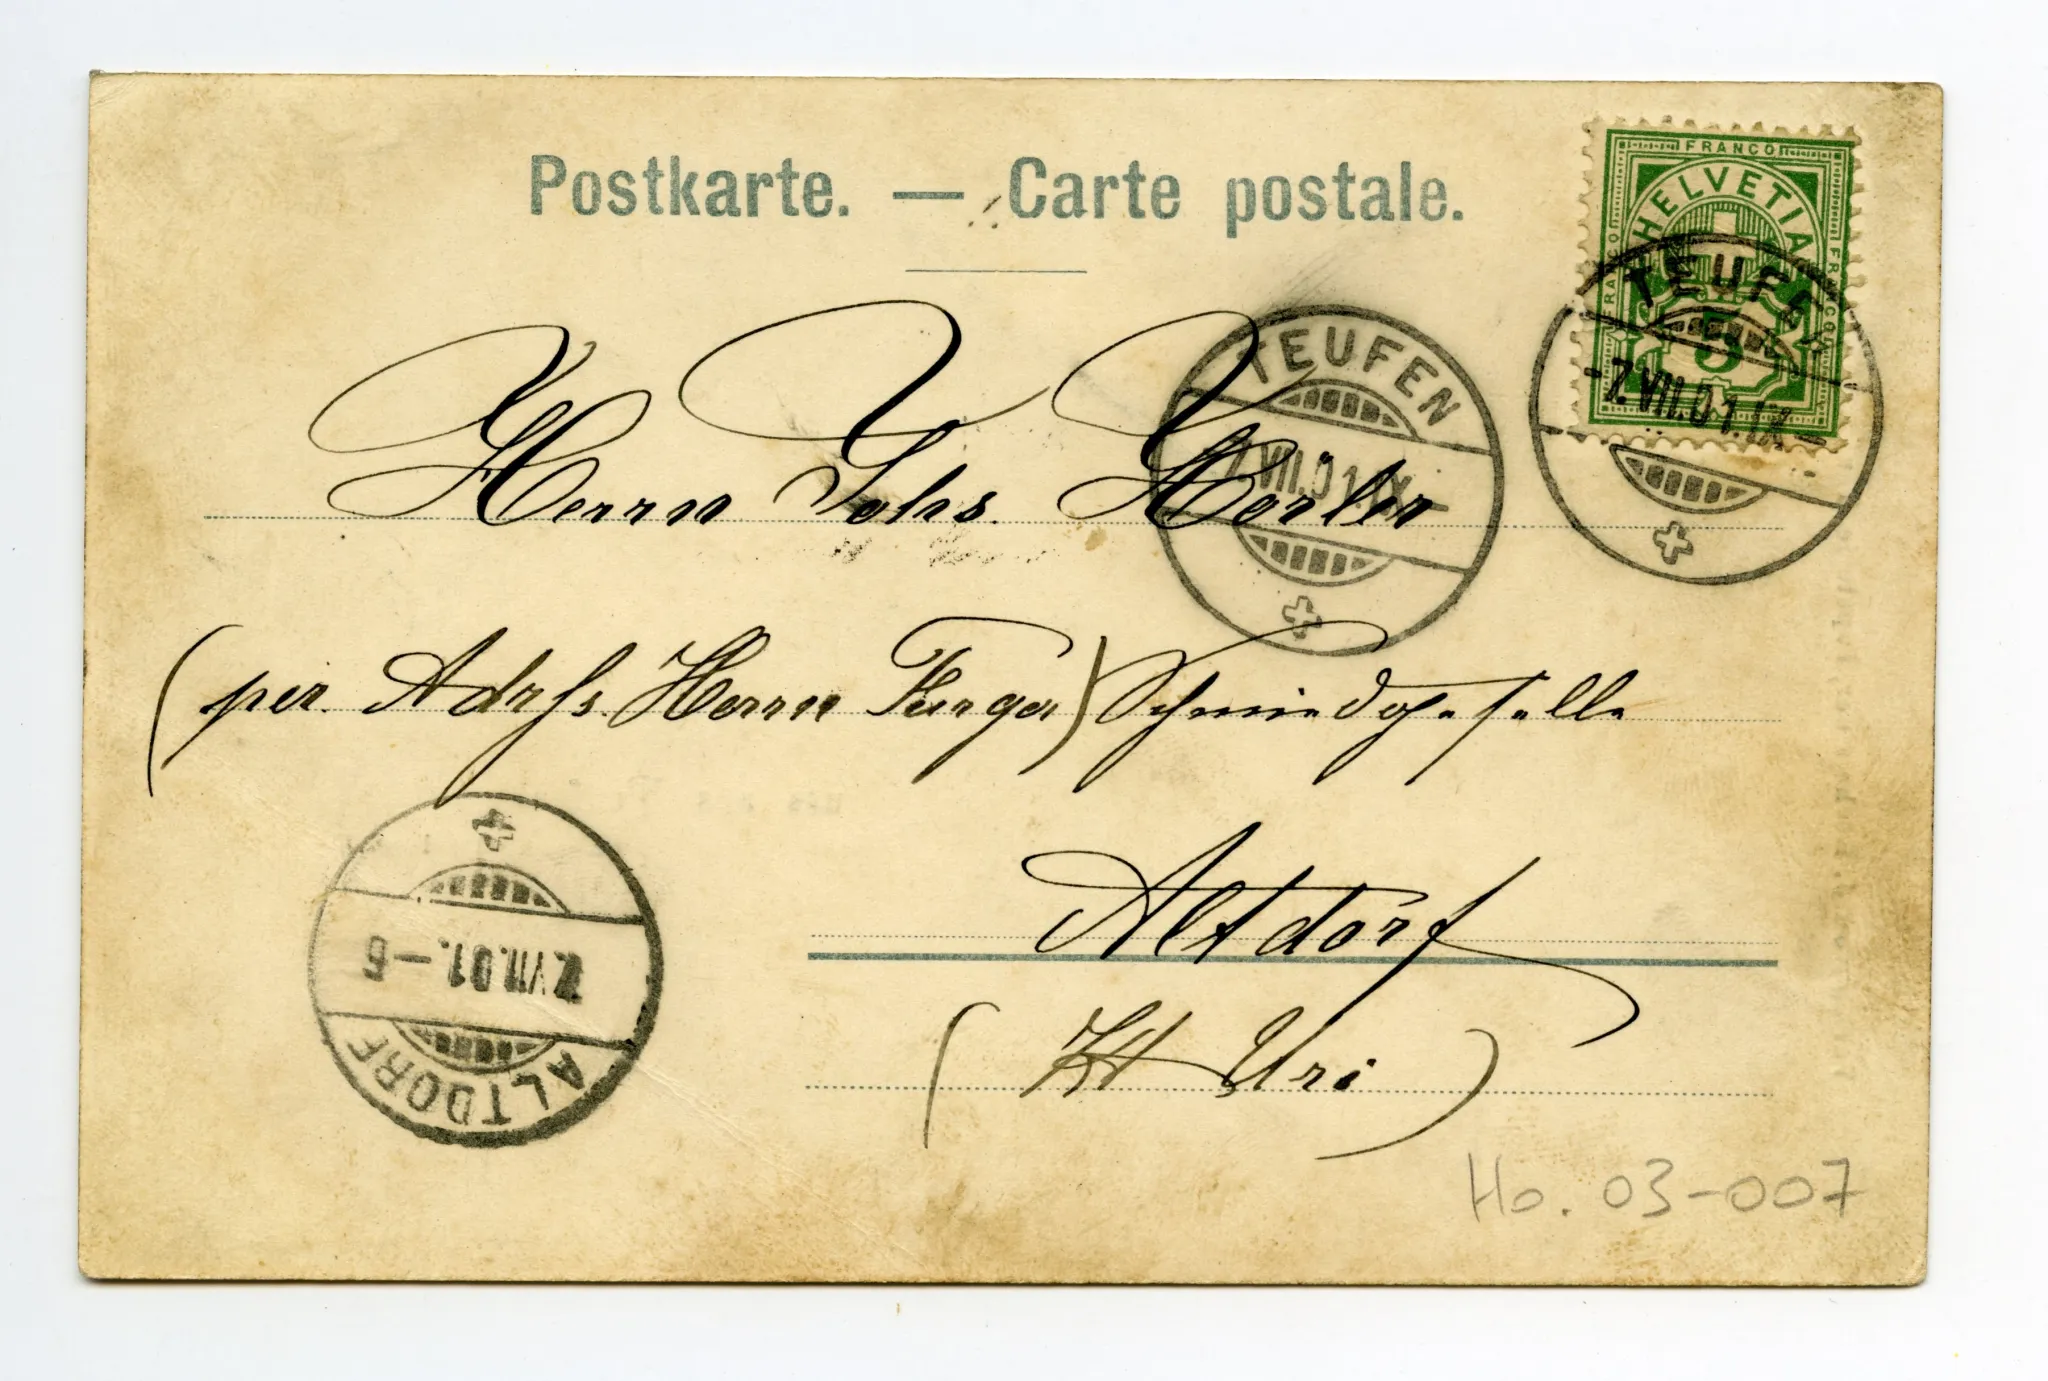 Postkarte. — Carte postale.
FRANCO
HELVETIA
FRANCO
FRANCO
5
TEUFEN
7.VII.01.IX-
TEUFEN
7.VII.01.IX-
Herrn Johs.
(per. Adrfs. Herrn Furger) Schmiedgeselle
Altdorf
(Kt Uri)
ALTDORF
7.VII.01.–6
Ho. 03-007